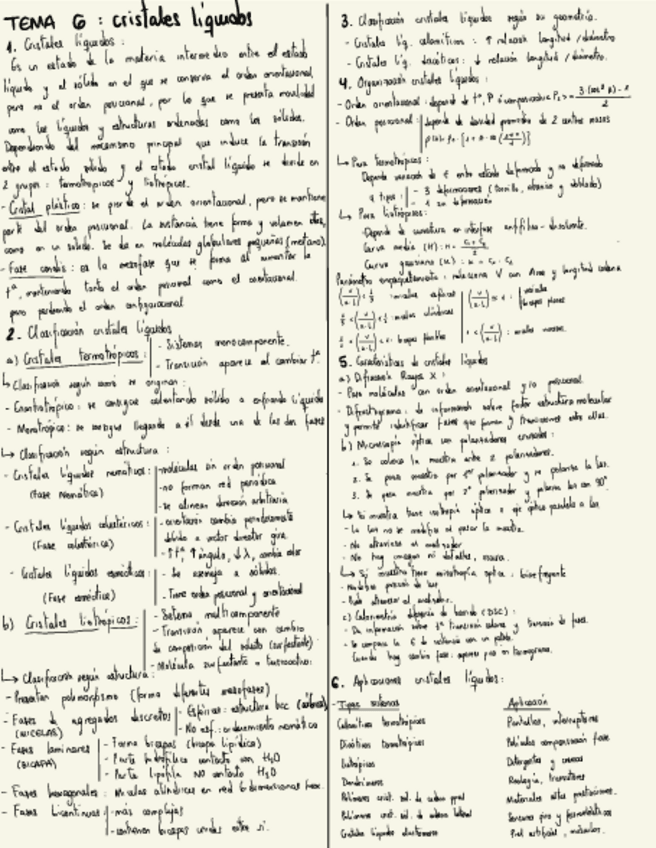 TEMA 6 : cristales líquidos
1. Cristales líquidos :
Es un estado de la materia intermedio entre el estado
líquido y el sólido en el que se conserva el orden orientacional,
pero no el orden posicional, por lo que se presenta movilidad
como los líquidos y estructuras ordenadas como los sólidos.
Dependiendo del mecanismo principal que induce la transición
entre el estado sólido y el estado cristal líquido se divide en
2 grupos : termotrópicos y liotrópicos.
- Cristal plástico : se pierde el orden orientacional, pero se mantiene
parte del orden posicional. La sustancia tiene forma y volumen
como en un sólido. Se da en moléculas globulares pequeñas (metano).
- Fase condis : es la mesofase que se forma al aumentar la
tª, manteniendo tanto el orden posicional como el orientacional.
pero perdiendo el orden configuracional
2. Clasificación cristales líquidos
a) Cristales termotrópicos :
- Sistemas monocomponente.
- Transición aparece al cambiar tª
↳ Clasificación según como se originan :
- Enantiotrópico : se consigue calentando sólido o enfriando líquido
- Monotrópico : se consigue llegando a él desde una de las dos fases
↳ Clasificación según estructura :
- Cristales líquidos nemáticos :
(Fase Nemática)
- moléculas sin orden posicional
- no forman red periódica
- se alinean dirección arbitraria
- Cristales líquidos colestéricos :
(Fase colestérica)
- orientación cambia periódicamente
debido a vector director gira.
- ↑tª ↑ángulo, ↓λ, cambia color
- Cristales líquidos esmécticos :
(Fase esméctica)
- Se asemeja a sólidos
- Tiene orden posicional y orientacional
b) Cristales liotrópicos :
- Sistema multicomponente
- Transición aparece con cambio
de composición del soluto (surfactante)
- Molécula surfactante o tensoactivo
↳ Clasificación según estructura :
- Presentan polimorfismo (forma diferentes mesofases)
- Fases de agregados discretos
(MICELAS)
- Esféricas : estructura bcc
- No esf. : ordenamiento nemático
- Fases laminares
(BICAPA)
- Forma bicapas (bicapa lipídica)
- Parte hidrofílica contacto con H₂O
- Parte lipófila NO contacto H₂O
- Fases hexagonales : micelas cilíndricas en red bidimensional hex.
- Fases bicontinuas
- más complejas
- contienen bicapas unidas entre sí.
3. Clasificación cristales líquidos según su geometría.
- Cristales líq. calamíticos : ↑ relación longitud / diámetro
- Cristales líq. discóticos : ↓ relación longitud / diámetro.
4. Organización cristales líquidos :
- Orden orientacional : depende de tª, P
- Orden posicional : depende de densidad promedio de 2 centros masas
↳ Para termotrópicos :
Depende variación de E entre estado deformado y no deformado
4 tipos :
- 3 deformaciones (tornillo, abanico y doblado)
- 1 sin deformación
↳ Para liotrópicos :
- Depende de curvatura en interfase anfífilo - disolvente.
Curva media (H) :
Curva gaussiana (K) :
Parámetro empaquetamiento : relaciona V con Área y longitud cadena
: micelas esféricas
: micelas cilíndricas
: bicapas flexibles
bicapas planas
: micelas inversas.
5. Características de cristales líquidos
a) Difracción Rayos X :
- Para moléculas con orden orientacional y/o posicional
- Difractograma : da información sobre estructura molecular
y permite identificar fases que forman y transiciones entre ellas.
b) Microscopía óptica con polarizadores cruzados :
1. Se coloca la muestra entre 2 polarizadores.
2. Se pasa muestra por 1er polarizador y se polariza la luz.
3. Se pasa muestra por 2º polarizador y polariza luz con 90º
↳ Si muestra tiene isotropía óptica o eje óptico paralelo a luz
- La luz no se modifica al pasar la muestra.
- No atraviesa el analizador
- No hay imagen ni detalles, oscura.
↳ Si muestra tiene anisotropía óptica : birrefringente
- Modifica posición de luz
- Puede atravesar el analizador.
c) Calorimetría diferencial de barrido (DSC) :
- Da información sobre Tª transición
- Se compara la E de sustancia con un patrón.
Cuando hay cambio fase : aparece pico en termograma.
6. Aplicaciones cristales líquidos :
Tipos sistemas
Aplicación
Calamíticos termotrópicos
Pantallas, interruptores
Discóticos termotrópicos
Películas compensación
Liotrópicos
Detergentes y
Dendrímeros
Reología,
Polímeros crist. líq. de cadena ppal
Materiales altas prestaciones.
Polímeros crist. líq. de cadena lateral
Sensores piro y
Cristales líquidos elastómeros
Piel artificial, músculos.